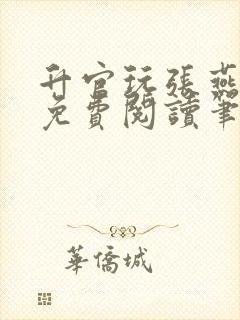 升官玩張燕
免費閱讀筆
華僑城